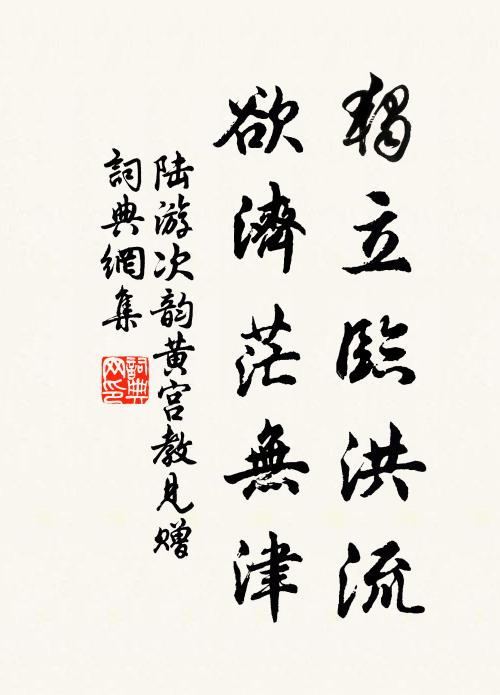 獨立臨洪流
欲濟茫無津
陆游次韵黄宫教見赠
詞典網集
詞典网印